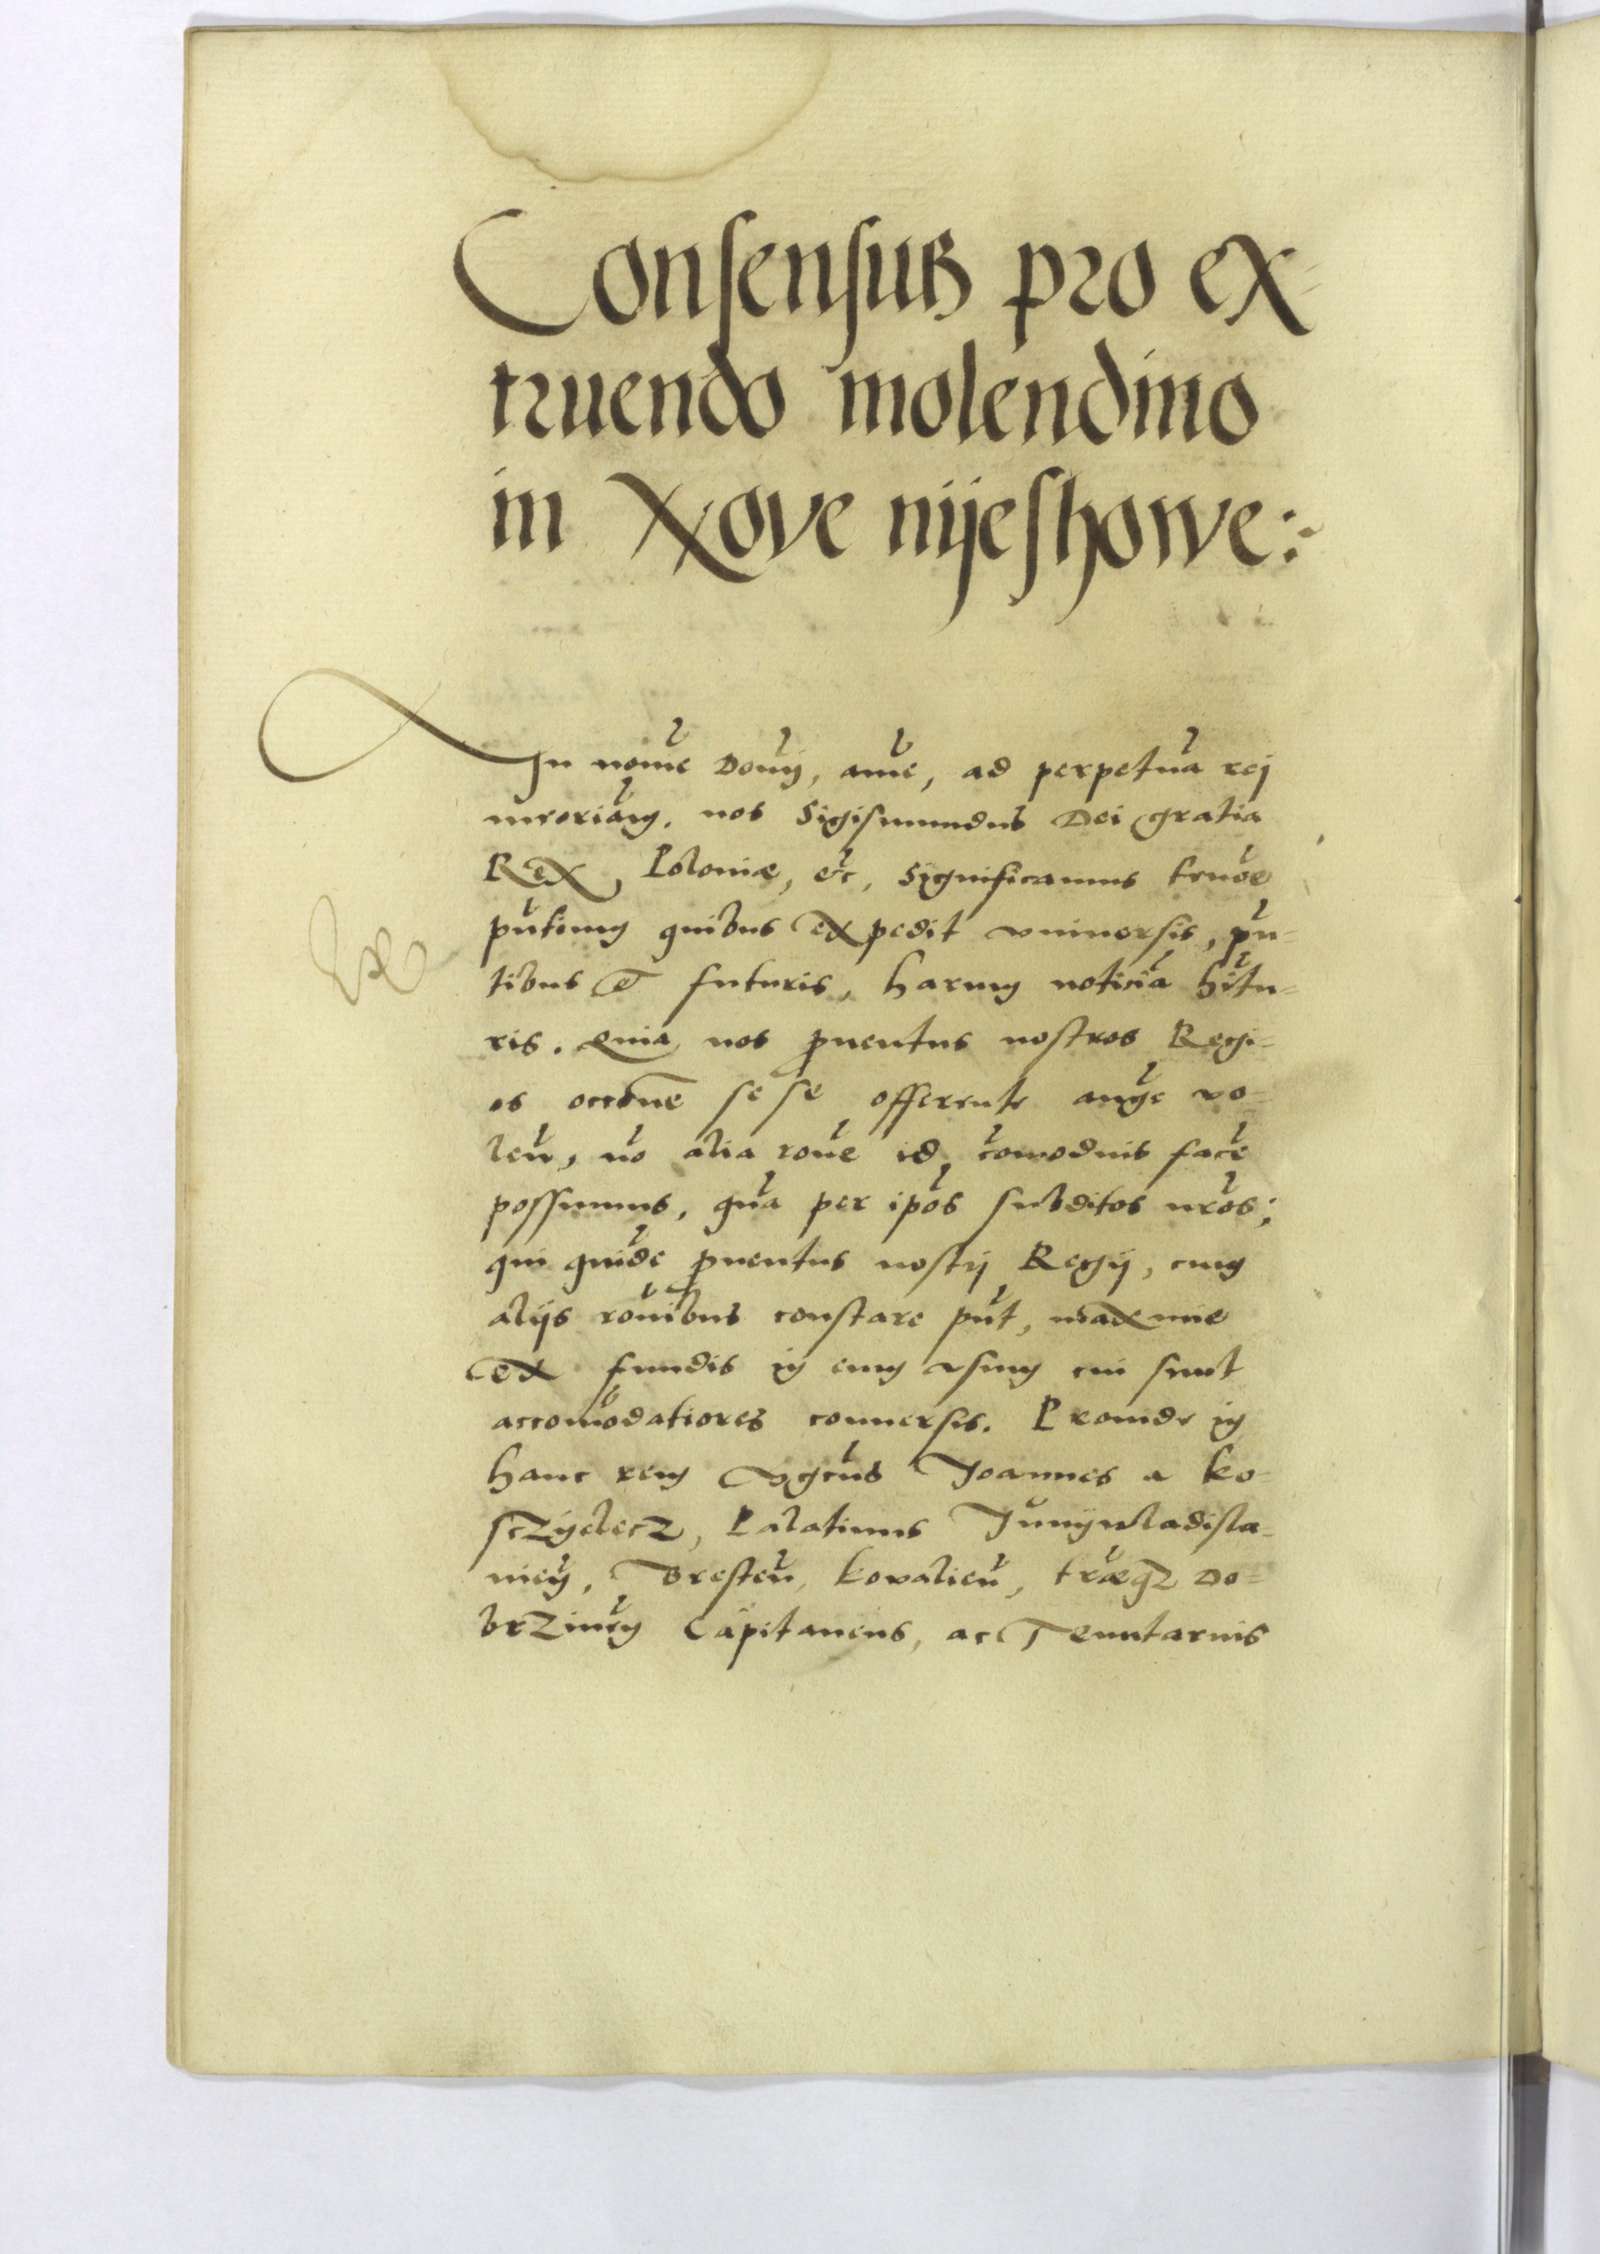 Consensus pro ex-
truendo molendino
in Nove nijeshowe:
In nome̅ Domj̅, ame̅, ad perpetua̅ rej
mroria̅m, nos Sigismundus Dei gratia
Rex Poloniæ, etc, Significamus teno̅e
pu̅tium quibus expedit vniuersis, pu̅-
tibus et futuris, harum noticia̅ hi̅tu-
ris. Quia nos prouentus nostros Regi-
os occōne sese offerente auge̅ vo-
len̅, no̅ alia rōne id, co̅modius face̅
possumus, qua̅ per ipo̅s subditos nro̅s;
qui quide̅ prouentus nostrj Regij, cum
alijs rōnibus constare pu̅t, maxime
ex fundis in eum vsum cui sunt
accomo̅datiores conuersis. Proinde in
hanc rem Mgcu̅s Joannes a Ko-
sczÿelecz, Palatinus Junÿwladisla-
uien̅, Bresten̅, Kovalien̅, træqz Do-
brzinen̅ Capitaneus, ac Tenutarius